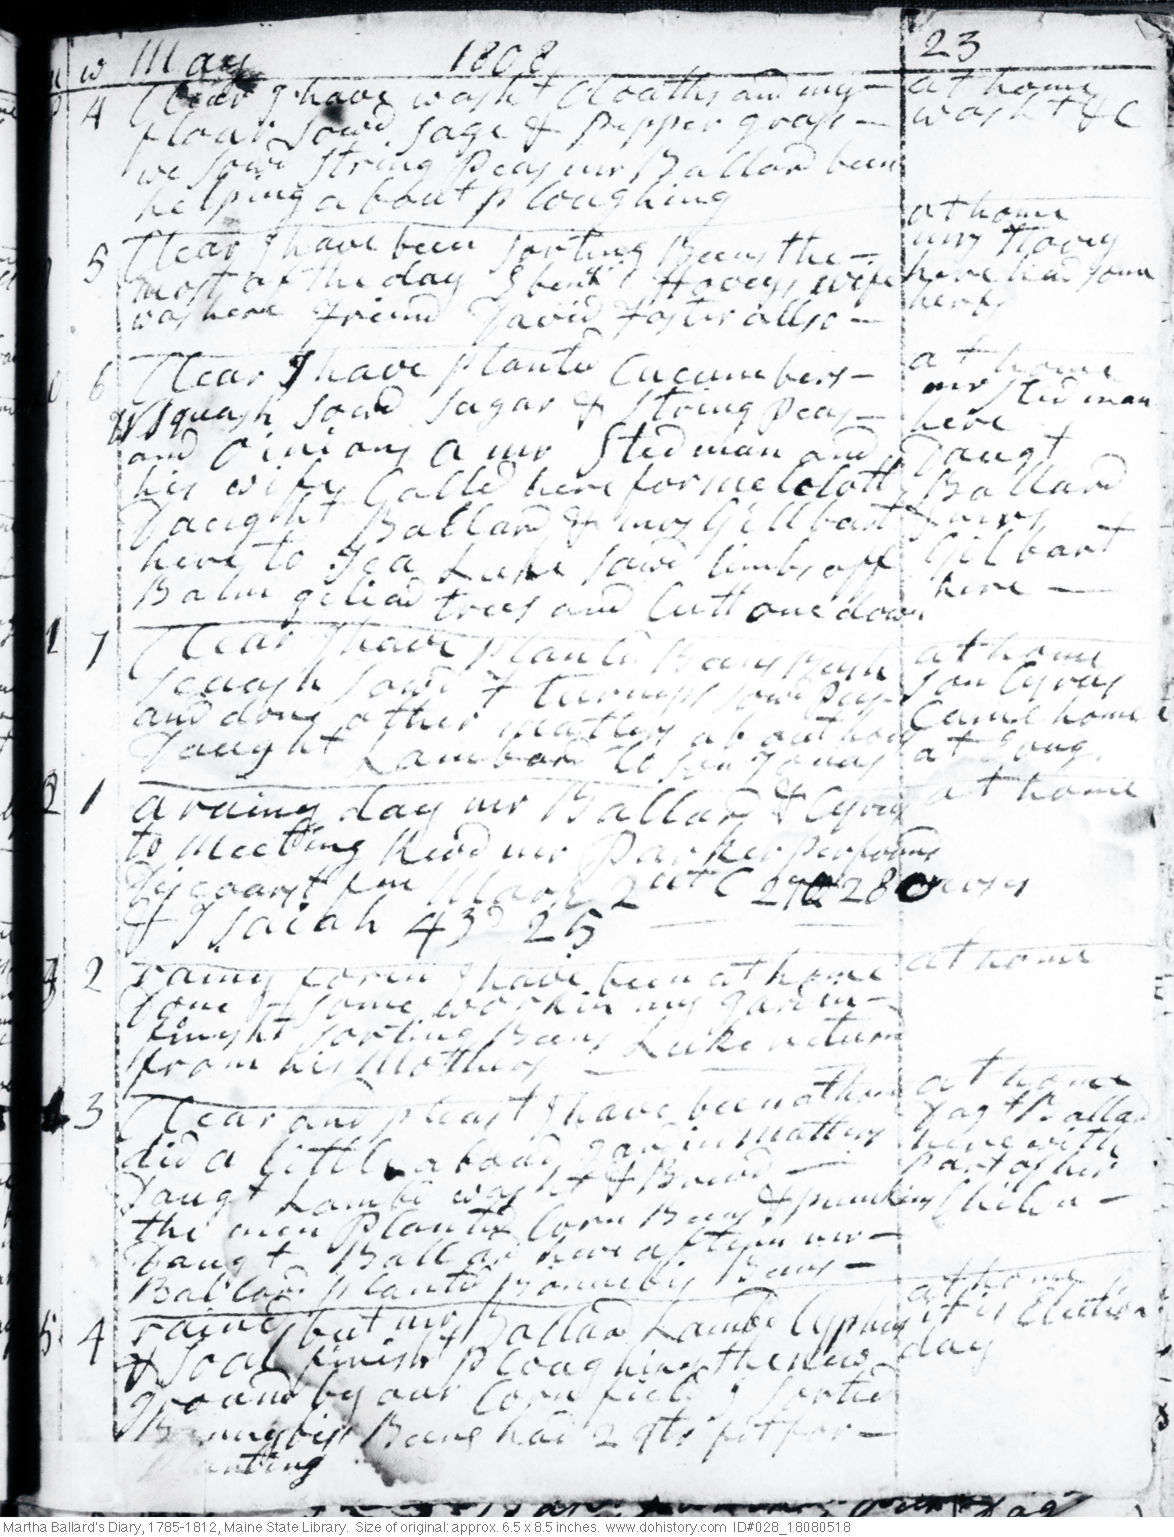 w May 1808 23
4 Clear I have washt Cloaths and my at home
floar sowd sage & Pepper grass washt &C
we sowd string Peas mr Ballard been
helping about Ploughing
5 Clear I have been sorting Beens the at home
most of the day Hoveys wife mrs Hovey
was here Friend David Foster allso here had some
herbs
6 Clear I have Planted Cucumbers at home
squash sowd sugar & string Peas mr Stedman
and oinions a mr Stedman and here
his wife Calld here for mellolott Daugt
Daught Ballard & mrs Gillbart Ballard
here to Tea Luke sawd limbs off Gilbart
Balm gilead trees and Cutt one down here
7 Clear I have Planted Beens Bush at home
squash sowd & turnips sowd Peas son Cyrus
and done other matters about house Came home
Daught Lambard to son Jonas at Eavng.
1 a rainy day mr Ballard & Cyrus at home
to meeting revd mr Parker performd
Discoarst from Mark 2nd C 27 & 28 verses
& Isaiah 43d 25
2 rainy foren I have been at home at home
done some work in my gardin
finisht sorting Beens Luke return
from his Mothers
3 Clear and pleast I have been at home at home
did a little about gardin matters Dagt Ballad
Daugt Lambd washt & Brewd here with
the men Planted Corn Beens & pumkins part of her
Daugt Ballad here aftern mr Childn
Ballard planted Beens
4 rainey but mr Ballard Lambd Cyphus at home
& Soal finisht Ploughing the new it is Election
ground by our Corn field I sorted day
Beens had 2 qts fit for
planting
Martha Ballard's Diary, 1785-1812, Maine State Library. Size of original: approx. 6.5 x 8.5 inches. www.dohistory.com ID#028_18080518